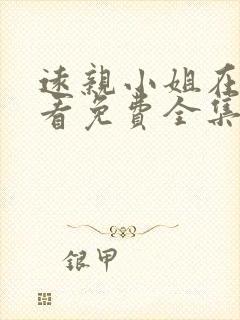 速亲小姐在
看免費全集
银甲